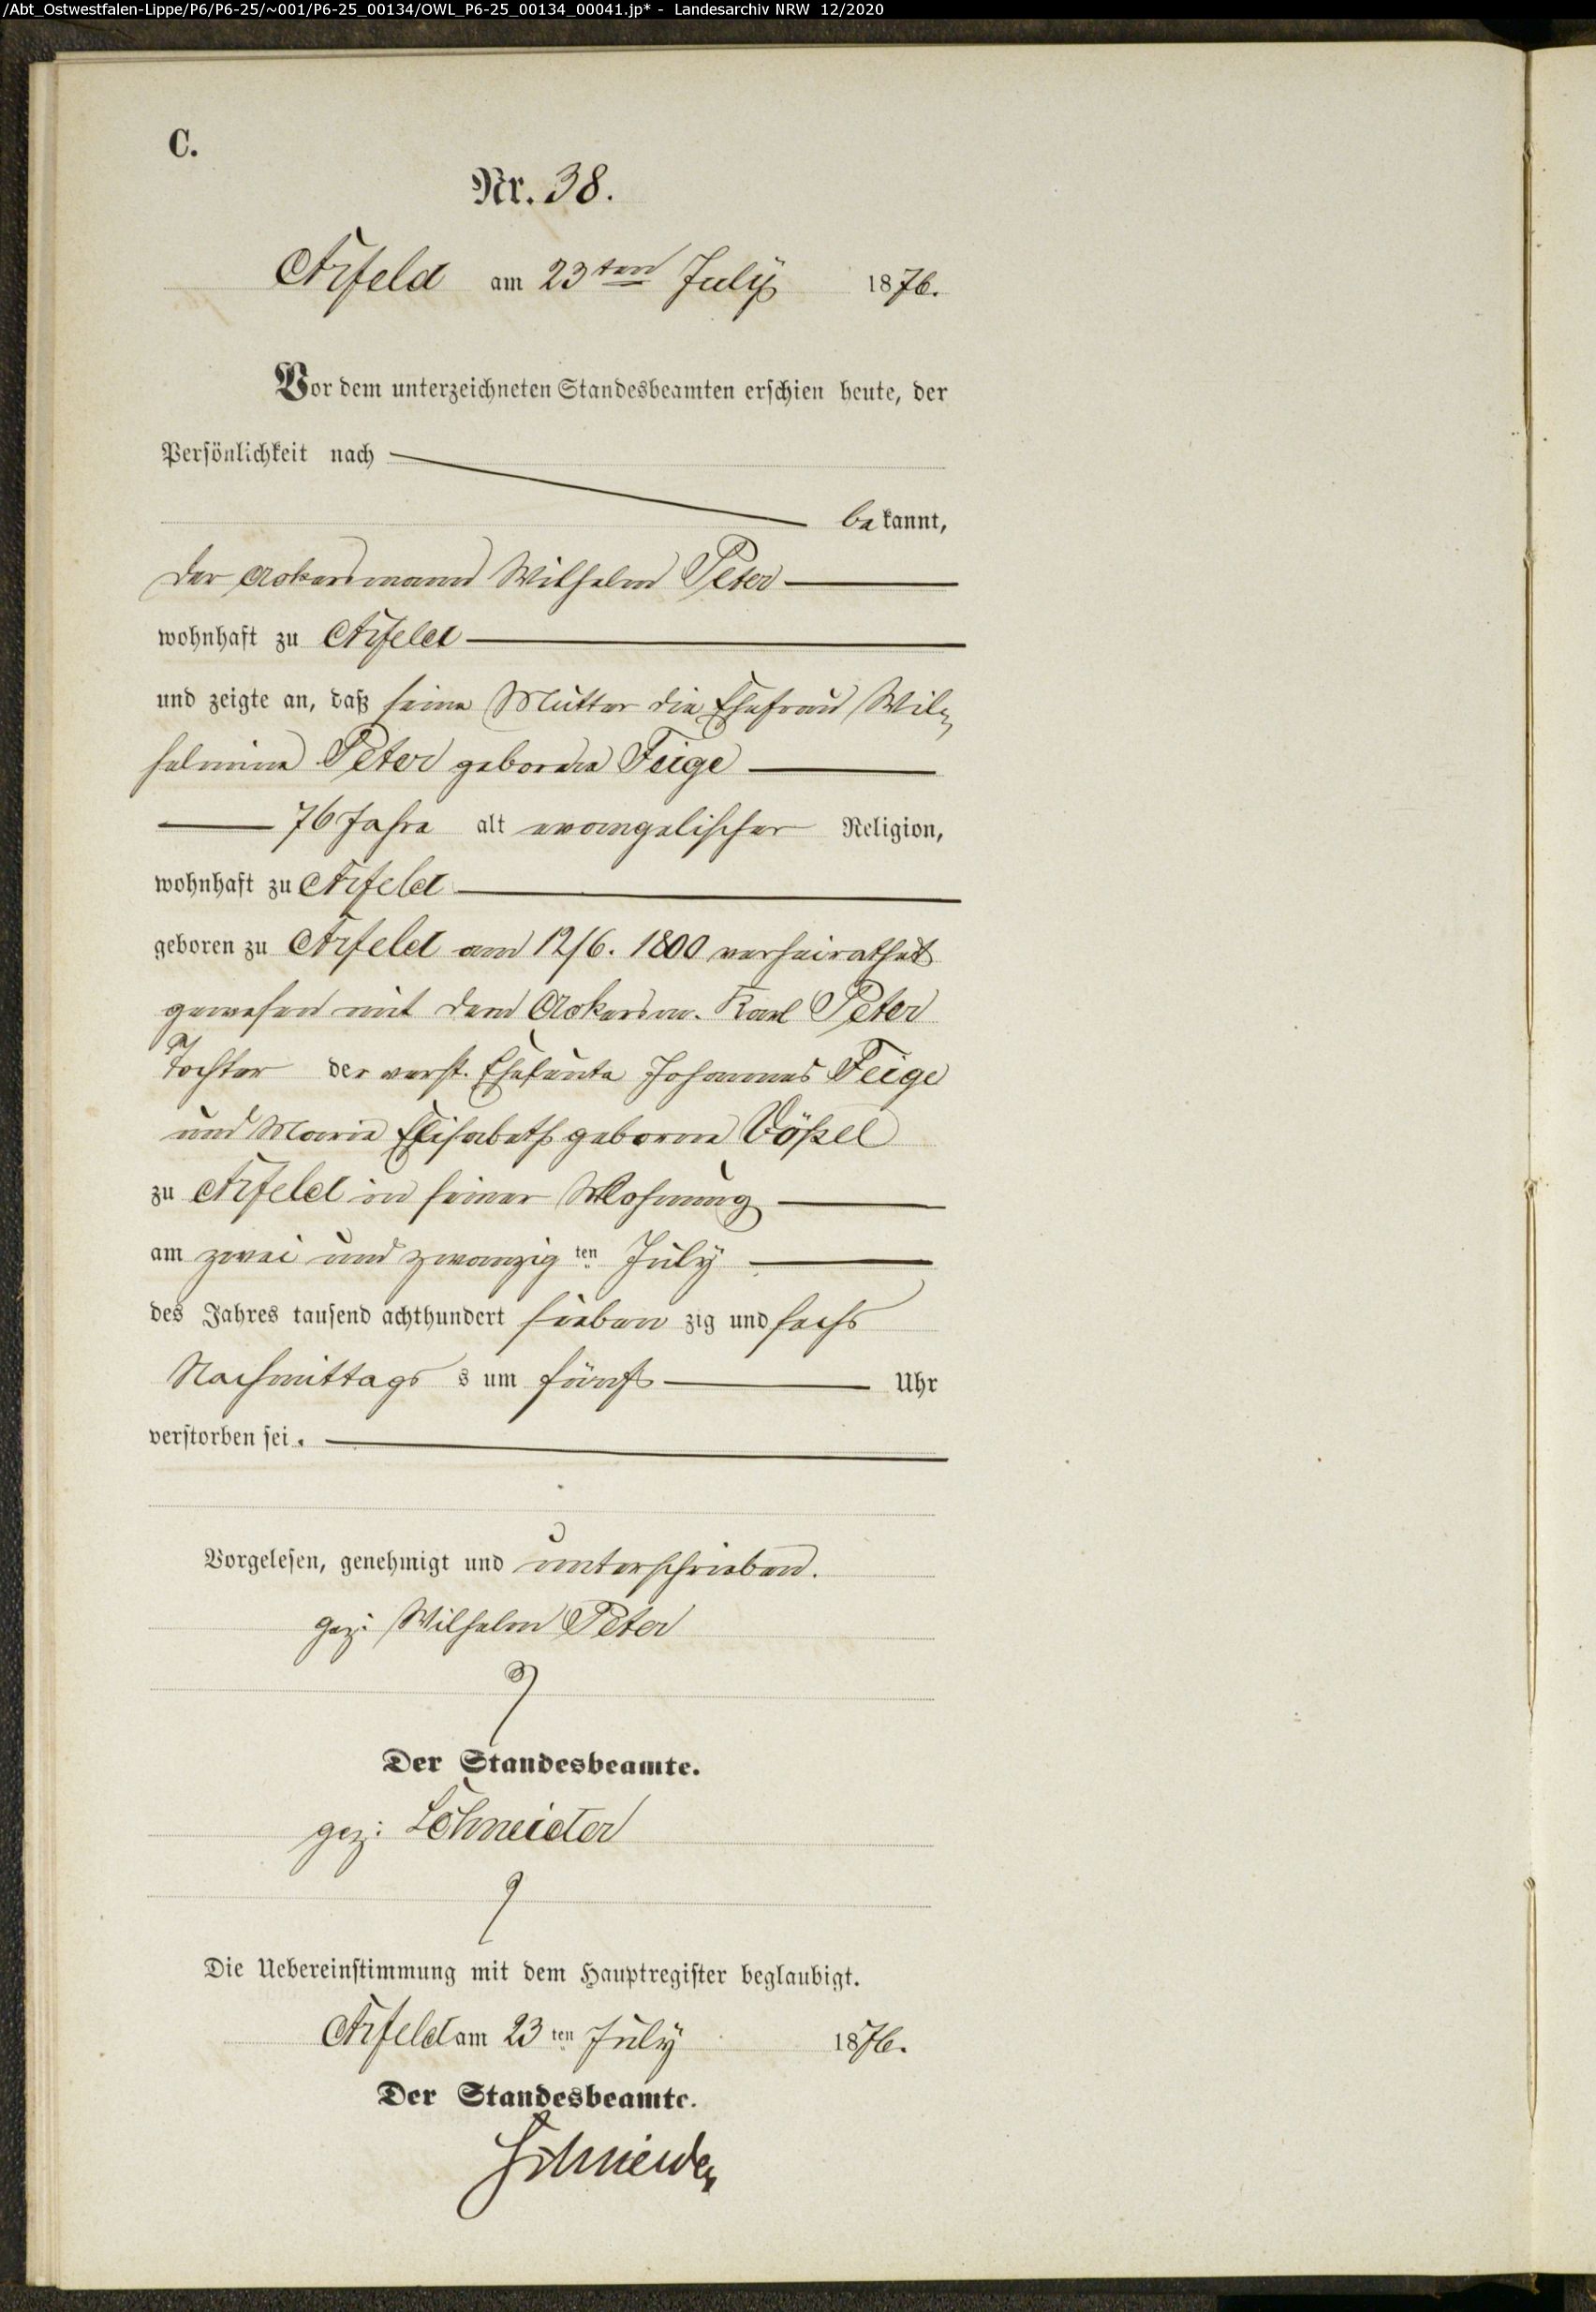 /Abt_Ostwestfalen-Lippe/P6/P6-25/~001/P6-25_00134/OWL_P6-25_00134_00041.jp* - Landesarchiv NRW 12/2020
C.
Nr. 38.
Arfeld am 23ten July 1876.
Vor dem unterzeichneten Standesbeamten erschien heute, der
Persönlichkeit nach
bekannt,
der Ackersmann Wilhelm Peter
wohnhaft zu Arfeld
und zeigte an, daß seine Mutter die Ehefrau Wil-
helmine Peter geborene Feige
76 Jahre alt evangelischer Religion,
wohnhaft zu Arfeld
geboren zu Arfeld am 12/6. 1800 verheirathet
gewesen mit dem Ackersm. Karl Peter
Tochter der verst. Eheleute Johannes Feige
und Marie Elisabeth geborne Vößel
zu Arfeld in seiner Wohnung
am zwei und zwanzig ten July
des Jahres tausend achthundert sieben zig und sechs
Nachmittags s um fünf Uhr
verstorben sei.
Vorgelesen, genehmigt und unterschrieben.
gez: Wilhelm Peter
Der Standesbeamte.
gez: Schneider
Die Uebereinstimmung mit dem Hauptregister beglaubigt.
Arfeld am 23 ten July 1876.
Der Standesbeamte.
Schneider